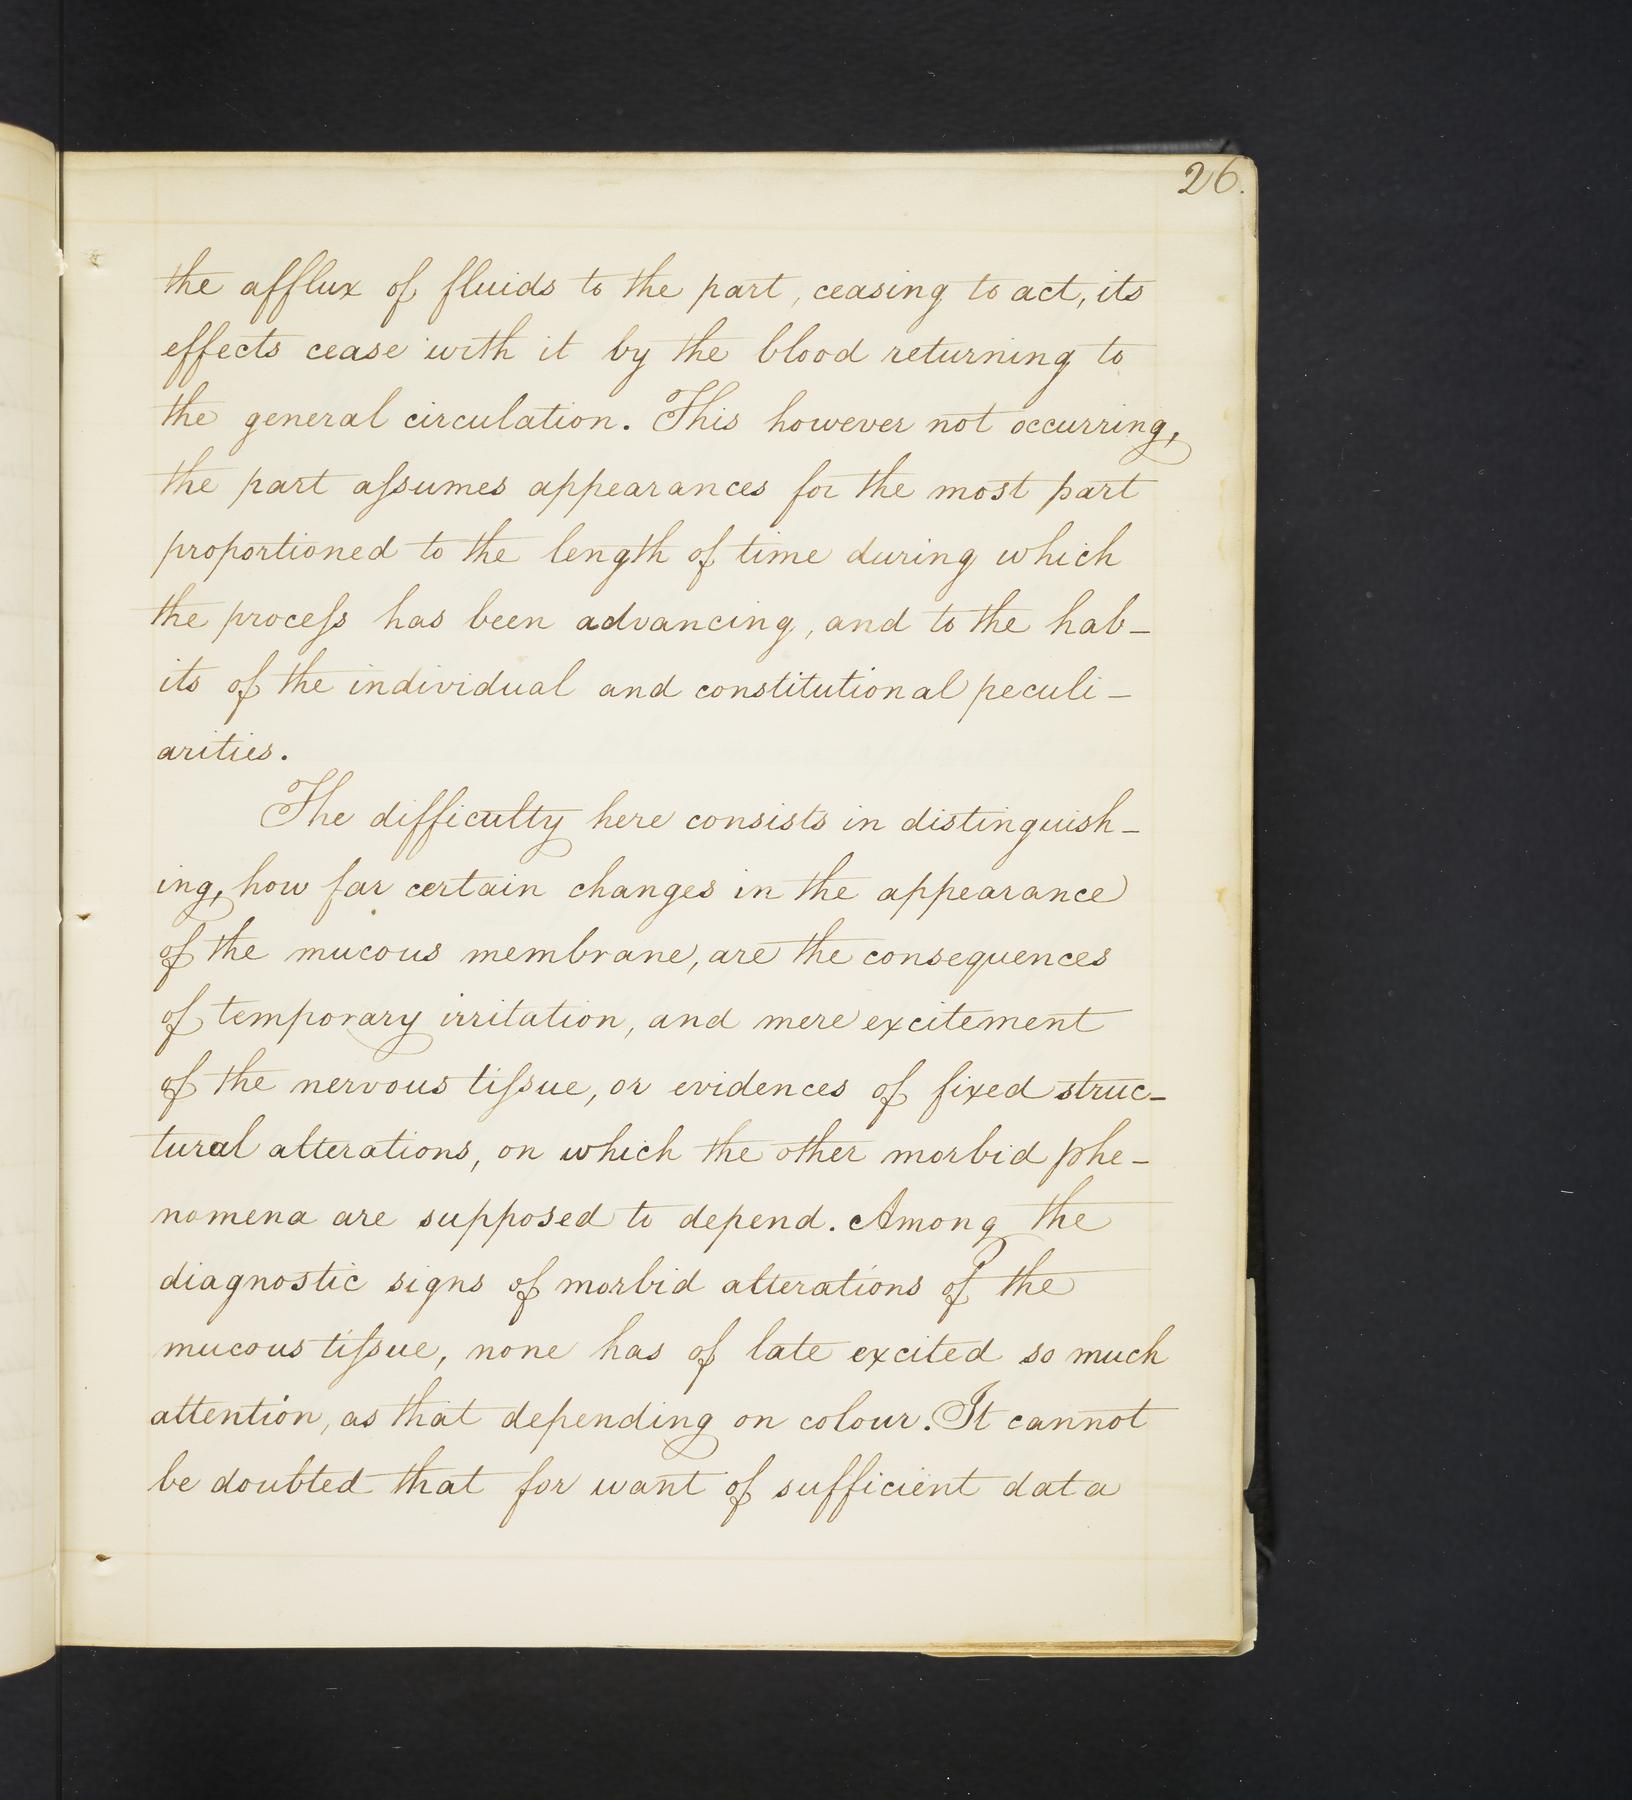 26.
the afflux of fluids to the part, ceasing to act, its
effects cease with it by the blood returning to
the general circulation. This however not occurring,
the part aſsumes appearances for the most part
proportioned to the length of time during which
the proceſs has been advancing, and to the hab-
its of the individual and constitutional peculi-
arities.
The difficulty here consists in distinguish-
ing, how far certain changes in the appearance
of the mucous membrane, are the consequences
of temporary irritation, and mere excitement
of the nervous tiſsue, or evidences of fixed struc-
tural alterations, on which the other morbid phe-
nomena are supposed to depend. Among the
diagnostic signs of morbid alterations of the
mucous tiſsue, none has of late excited so much
attention, as that depending on colour. It cannot
be doubted that for want of sufficient data